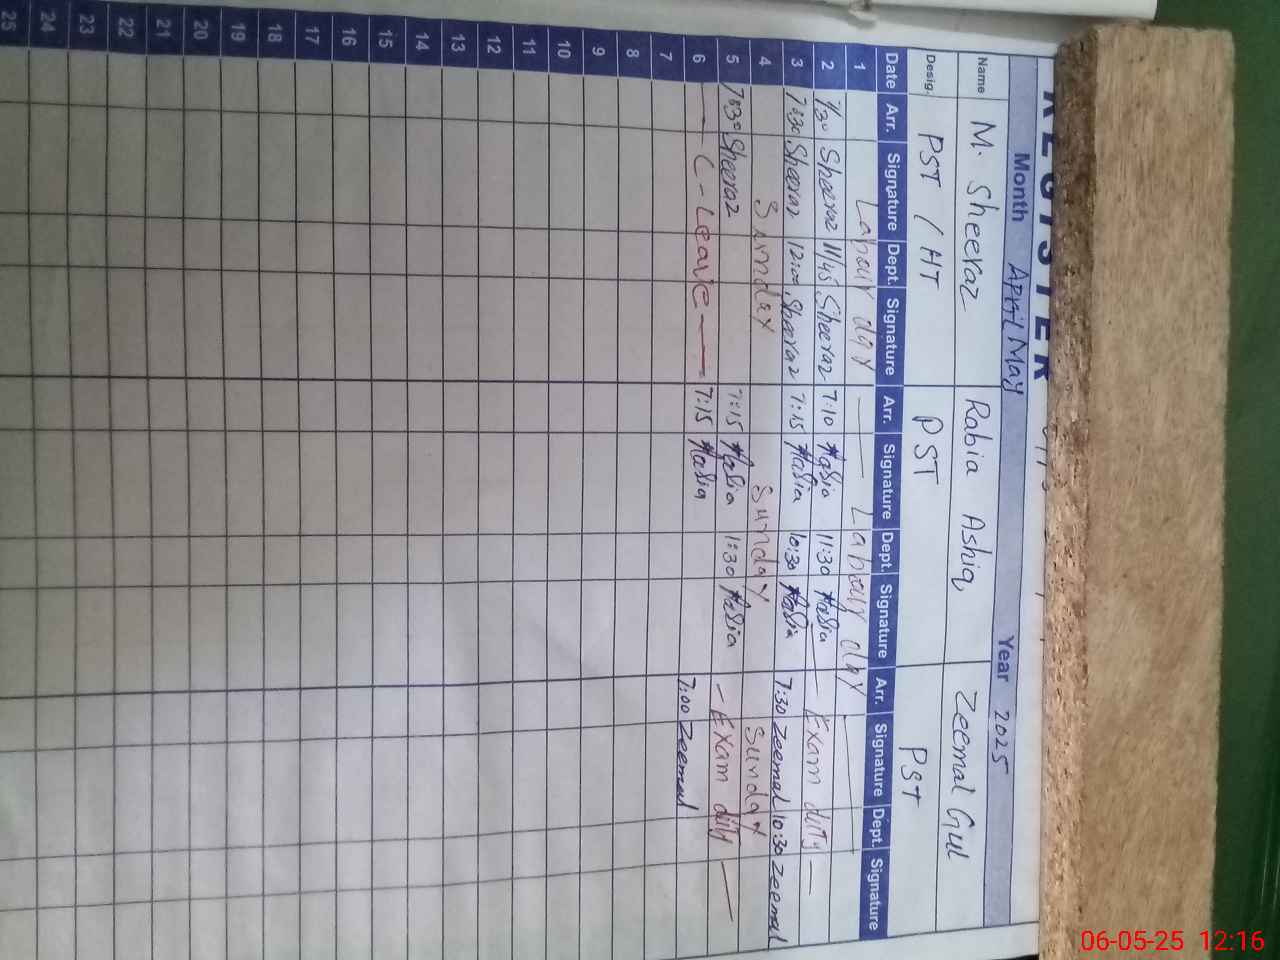 REGISTER
Month April May Year 2025
Name M. Sheeraz Rabia Ashiq Zeemal Gul
Desig. PST / HT PST PST
Date Arr. Signature Dept. Signature Arr. Signature Dept. Signature Arr. Signature Dept. Signature
1 Labour day — Labour day —
2 7/30 Sheeraz 11/45 Sheeraz 7:10 Rabia 11:30 Rabia — Exam duty —
3 7:30 Sheeraz 12:00 Sheeraz 7:15 Rabia 10:30 Rabia 7:30 Zeemal 10:30 Zeemal
4 Sunday Sunday Sunday
5 7:30 Sheeraz 7:15 Rabia 1:30 Rabia - Exam duty —
6 — C-Leave — 7:15 Rabia 7:00 Zeemal
7
8
9
10
11
12
13
14
15
16
17
18
19
20
21
22
23
24
25
06-05-25 12:16